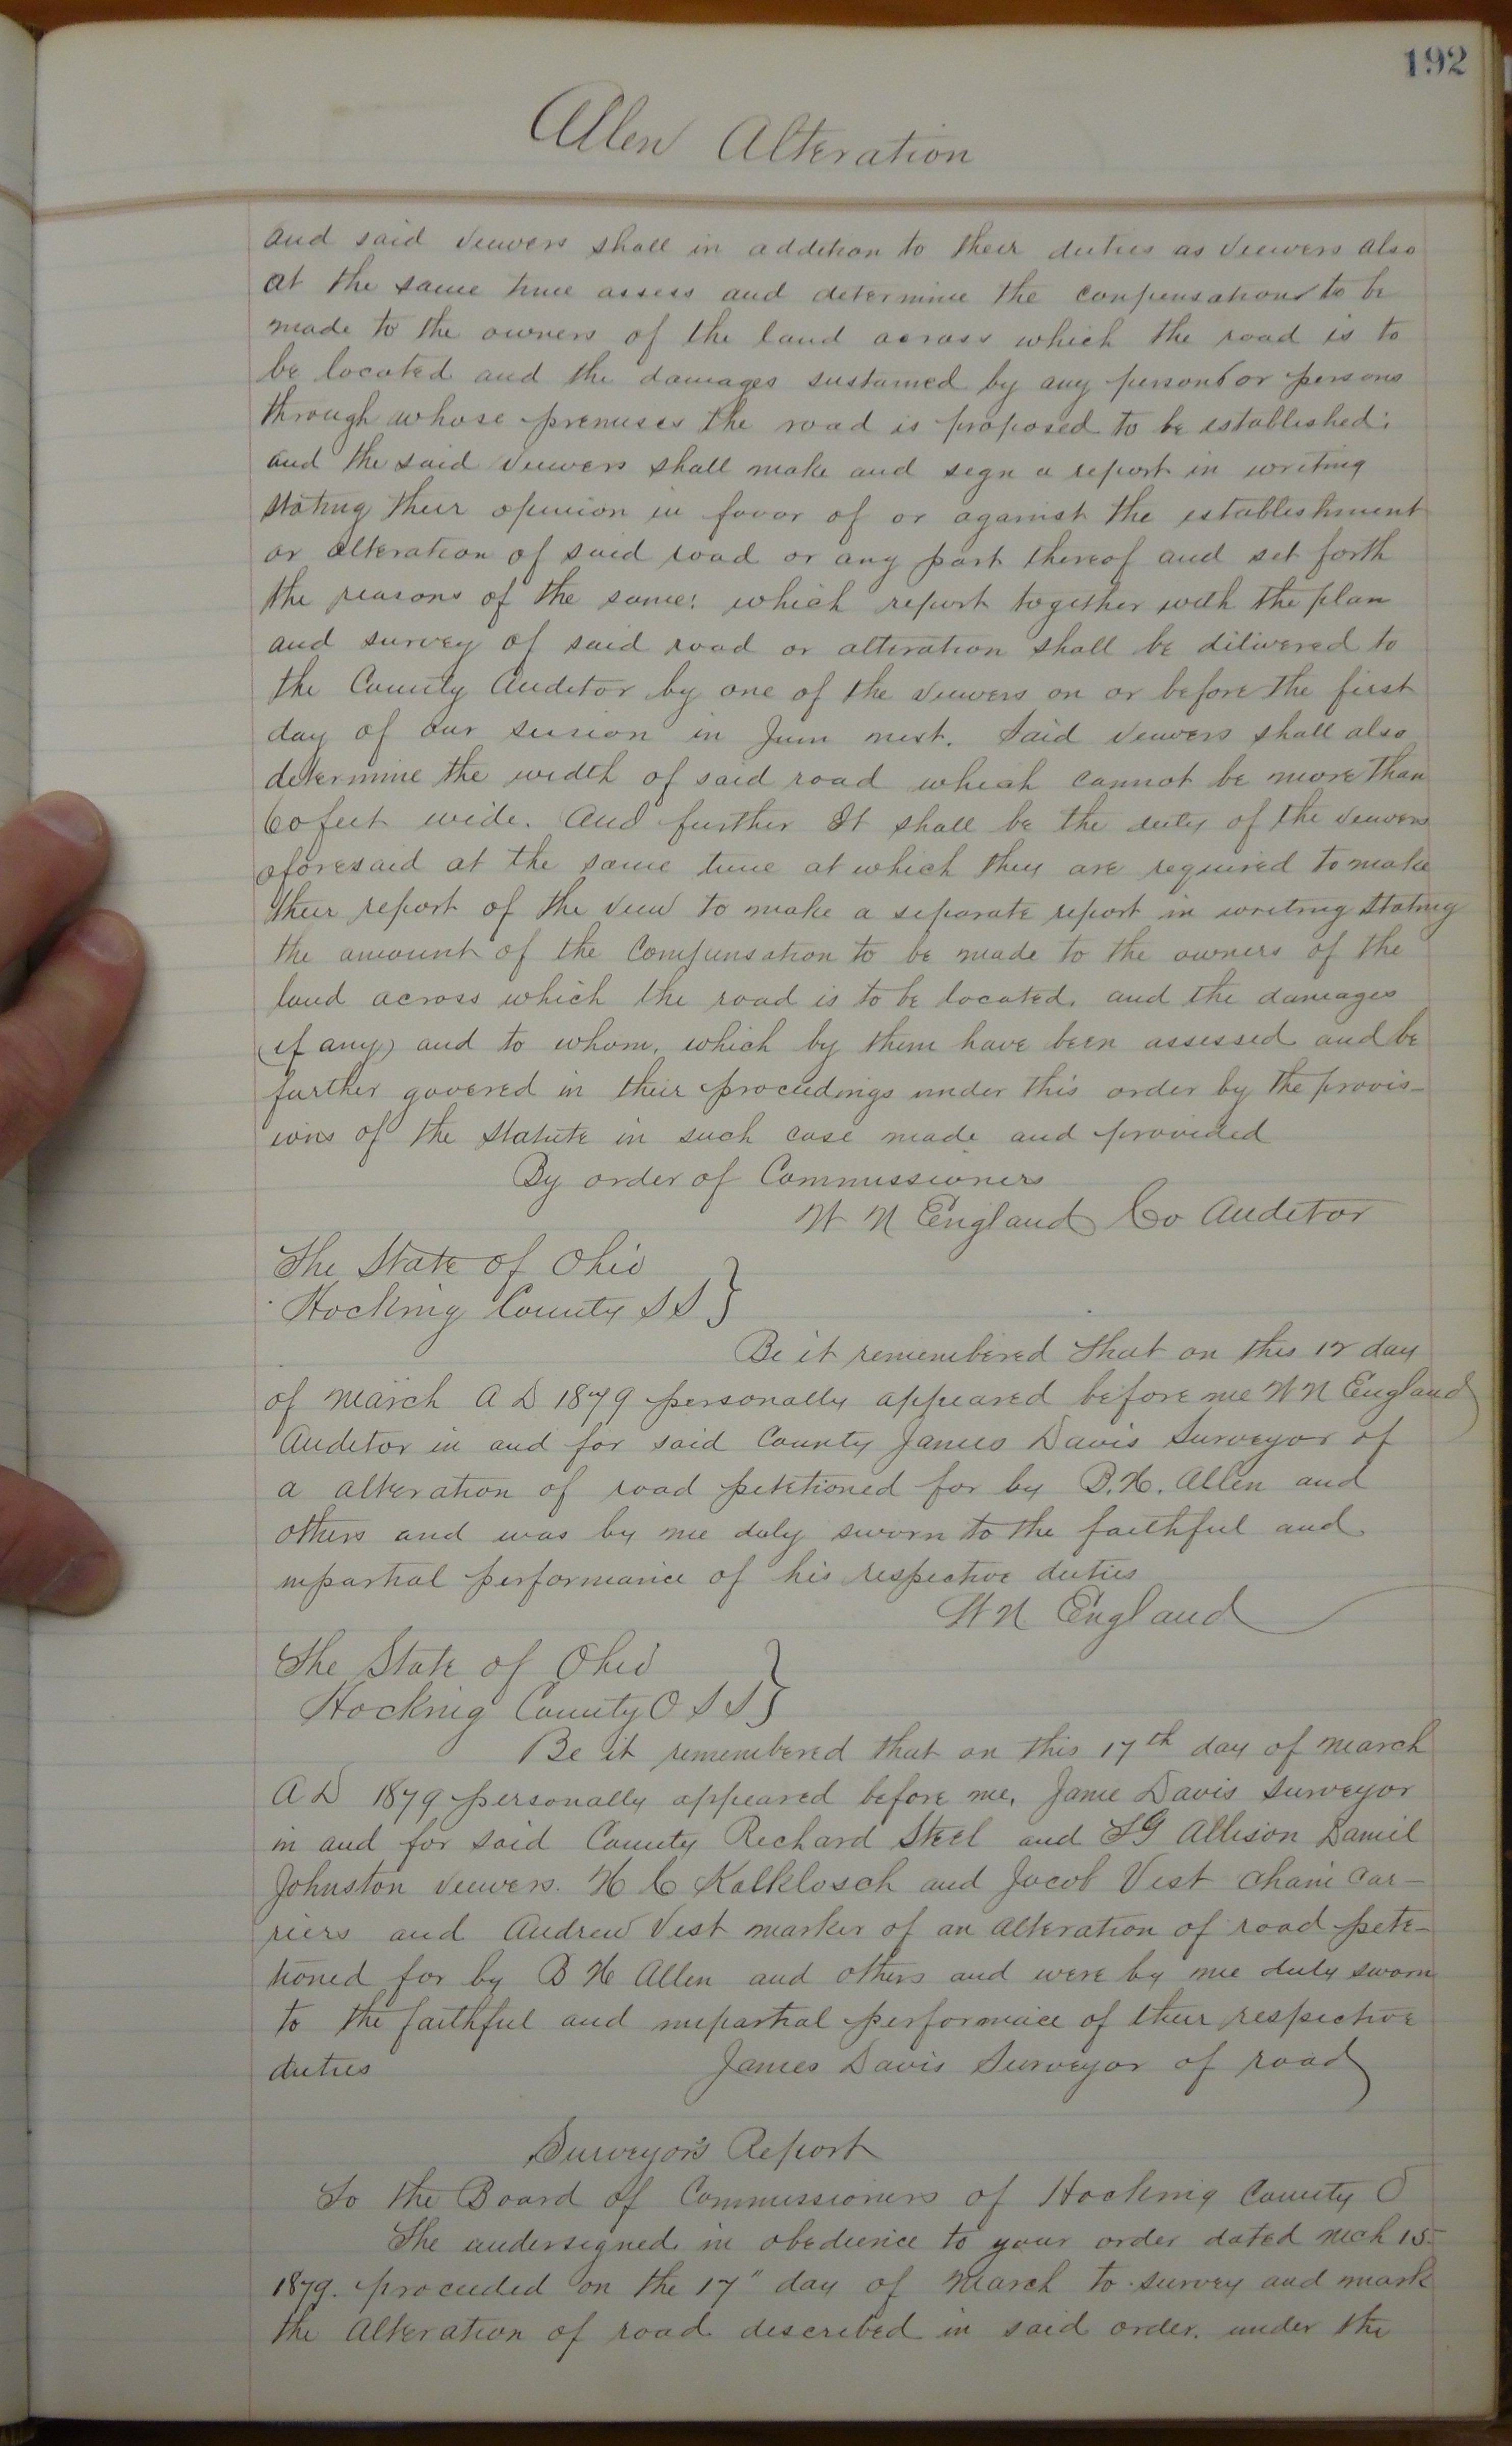 192
Allen Alteration
and said viewers shall in addition to their duties as viewers also
at the same time assess and determine the conpensation to be
made to the owners of the land across which the road is to
be located and the damages sustained by any person or persons
through whose premises the road is proposed to be established;
and the said viewers shall make and sign a report in writing
stating their opinion in favor of or against the establishment
or alteration of said road or any part thereof and set forth
the reasons of the same; which report together with the plan
and survey of said road or alteration shall be dilivered to
the County Auditor by one of the viewers on or before the first
day of our session in June next. Said viewers shall also
determine the width of said road which cannot be more than
60 feet wide. And further It shall be the duty of the viewers
aforesaid at the same time at which they are required to make
their report of the view to make a separate report in writing stating
the amount of the Compensation to be made to the owners of the
land across which the road is to be located, and the damages
(if any) and to whom, which by them have been assessed and be
further govered in their proceedings under this order by the provis-
ions of the statute in such case made and provided
By order of Commissioners
W N England Co Auditor
The State of Ohio
Hocking County SS }
Be it remembered that on this 12 day
of March A D 1879 personally appeared before me W N England
Auditor in and for said County James Davis Surveyor of
a alteration of road petitioned for by B. H. Allen and
others and was by me duly sworn to the faithful and
inpartial performance of his respective duties
W N England
The State of Ohio
Hocking County O SS }
Be it remembered that on this 17th day of March
A D 1879 personally appeared before me, Jame Davis Surveyor
in and for said County Richard Steel and Allison Daniel
Johnston viewers. H C Kalklosch and Jacob Vest chain car-
riers and Andrew Vest marker of an alteration of road peti-
tioned for by B H Allen and others and were by me duly sworn
to the faithful and inpartial performance of their respective
duties
James Davis Surveyor of road
Surveyor's Report
To the Board of Commissioners of Hocking County O
The undersigned in obedience to your order dated Mch 15
1879. proceeded on the 17" day of March to survey and mark
the Alteration of road described in said order. under the